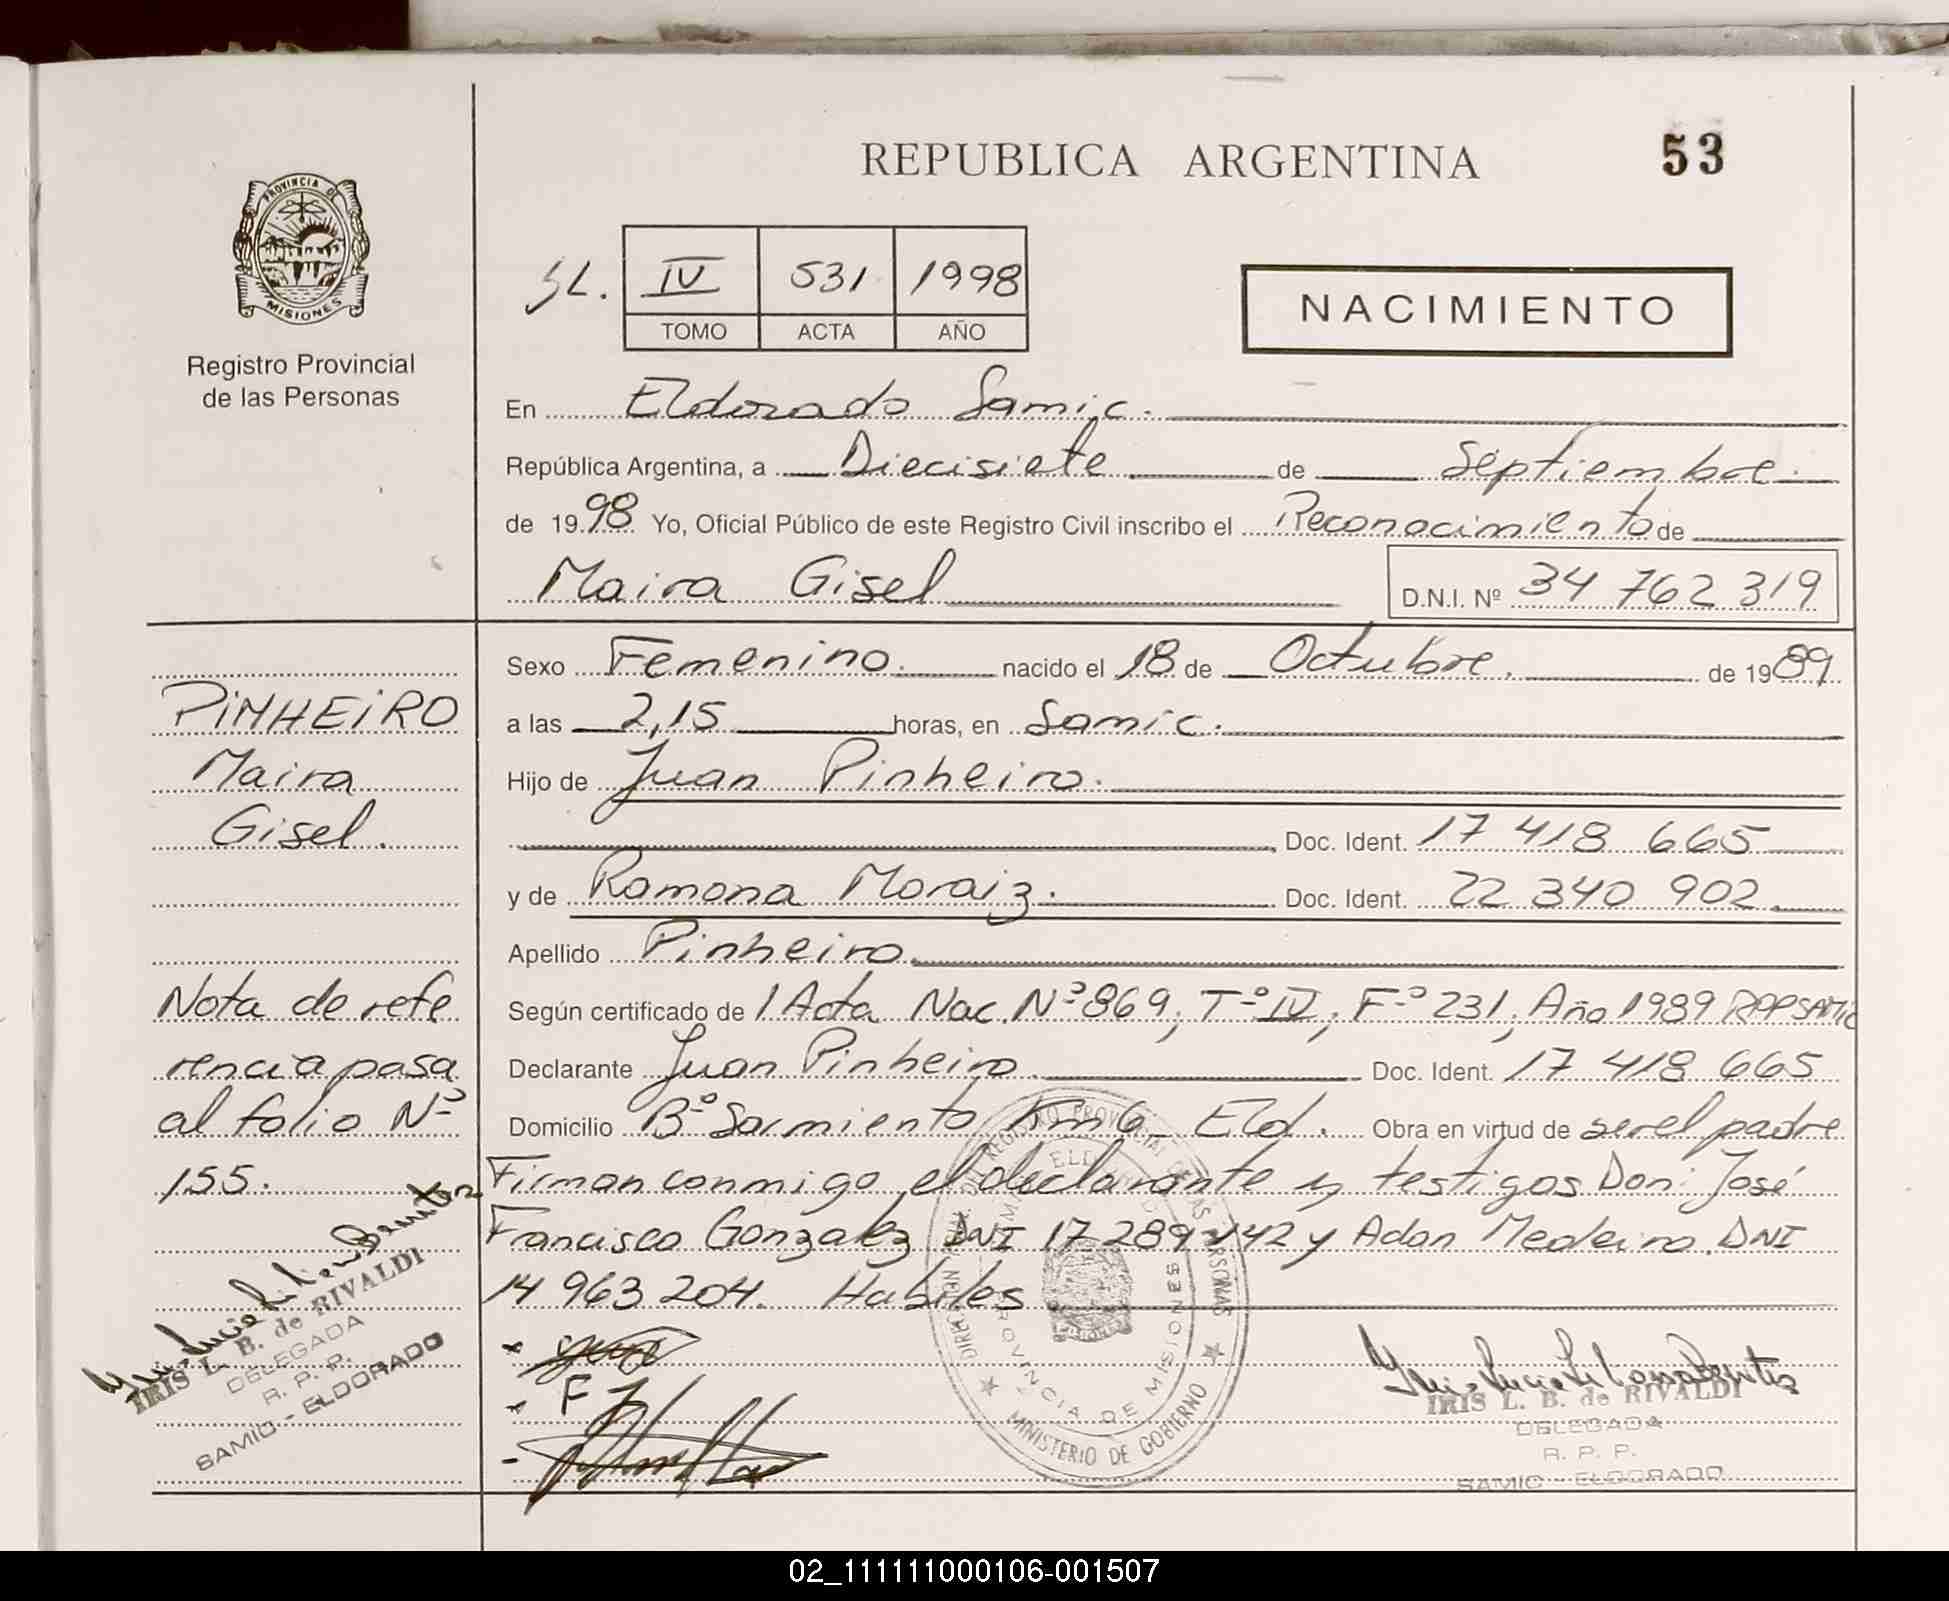 REPUBLICA ARGENTINA
53
PROVINCIA DE
MISIONES
Registro Provincial
de las Personas
SL.
IV 531 1998
TOMO ACTA AÑO
NACIMIENTO
En Eldorado Samic.
República Argentina, a Diecisiete de Septiembre.
de 1998 Yo, Oficial Público de este Registro Civil inscribo el Reconocimiento de
Maira Gisel D.N.I. Nº 34 762 319
Sexo Femenino. nacido el 18 de Octubre. de 1989.
a las 2,15 horas, en Samic.
Hijo de Juan Pinheiro.
Doc. Ident. 17 418 665
y de Ramona Moraiz. Doc. Ident. 22 340 902.
Apellido Pinheiro.
Según certificado de 1 Acta Nac. Nº 869, Tº IV, Fº 231, Año 1989 RPPSAMIC
Declarante Juan Pinheiro. Doc. Ident. 17 418 665
Domicilio Bº Sarmiento Km 6 Eld. Obra en virtud de ser el padre
Firman conmigo el declarante y testigos Don: José
Francisco Gonzalez DNI 17 289 142 y Adan Medeiro. DNI
14 963 204. Habiles
PINHEIRO
Maira
Gisel.
Nota de refe
rencia pasa
al folio Nº
155.
IRIS L. B. de RIVALDI
DELEGADA
R. P. P.
SAMIC - ELDORADO
MINISTERIO DE GOBIERNO
PROVINCIA DE MISIONES
IRIS L. B. de RIVALDI
DELEGADA
R. P. P.
SAMIC - ELDORADO
02_111111000106-001507